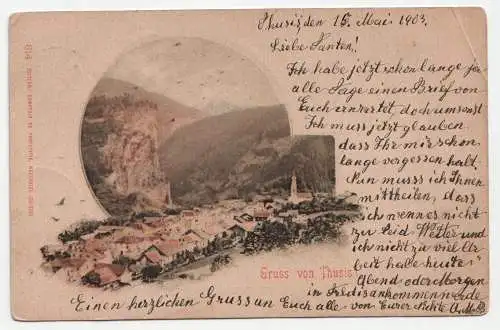 Thusis, den 15. Mai 1903.
Liebe Tanten!
Ich habe jetzt schon lange ja
alle Tage einen Brief von
Euch erwartet, doch umsonst
Ich muss jetzt glauben
dass Ihr mir schon
lange vergessen habt.
Nun muss ich Ihnen
mittheilen, dass
ich wenn es nicht
zu Wetter und
ich nicht zu viel Ar
beit habe heute
Abend oder Morgen
in ankommen werde
Einen herzlichen Gruss an Euch alle von Eurer Nichte
Gruss von Thusis
814